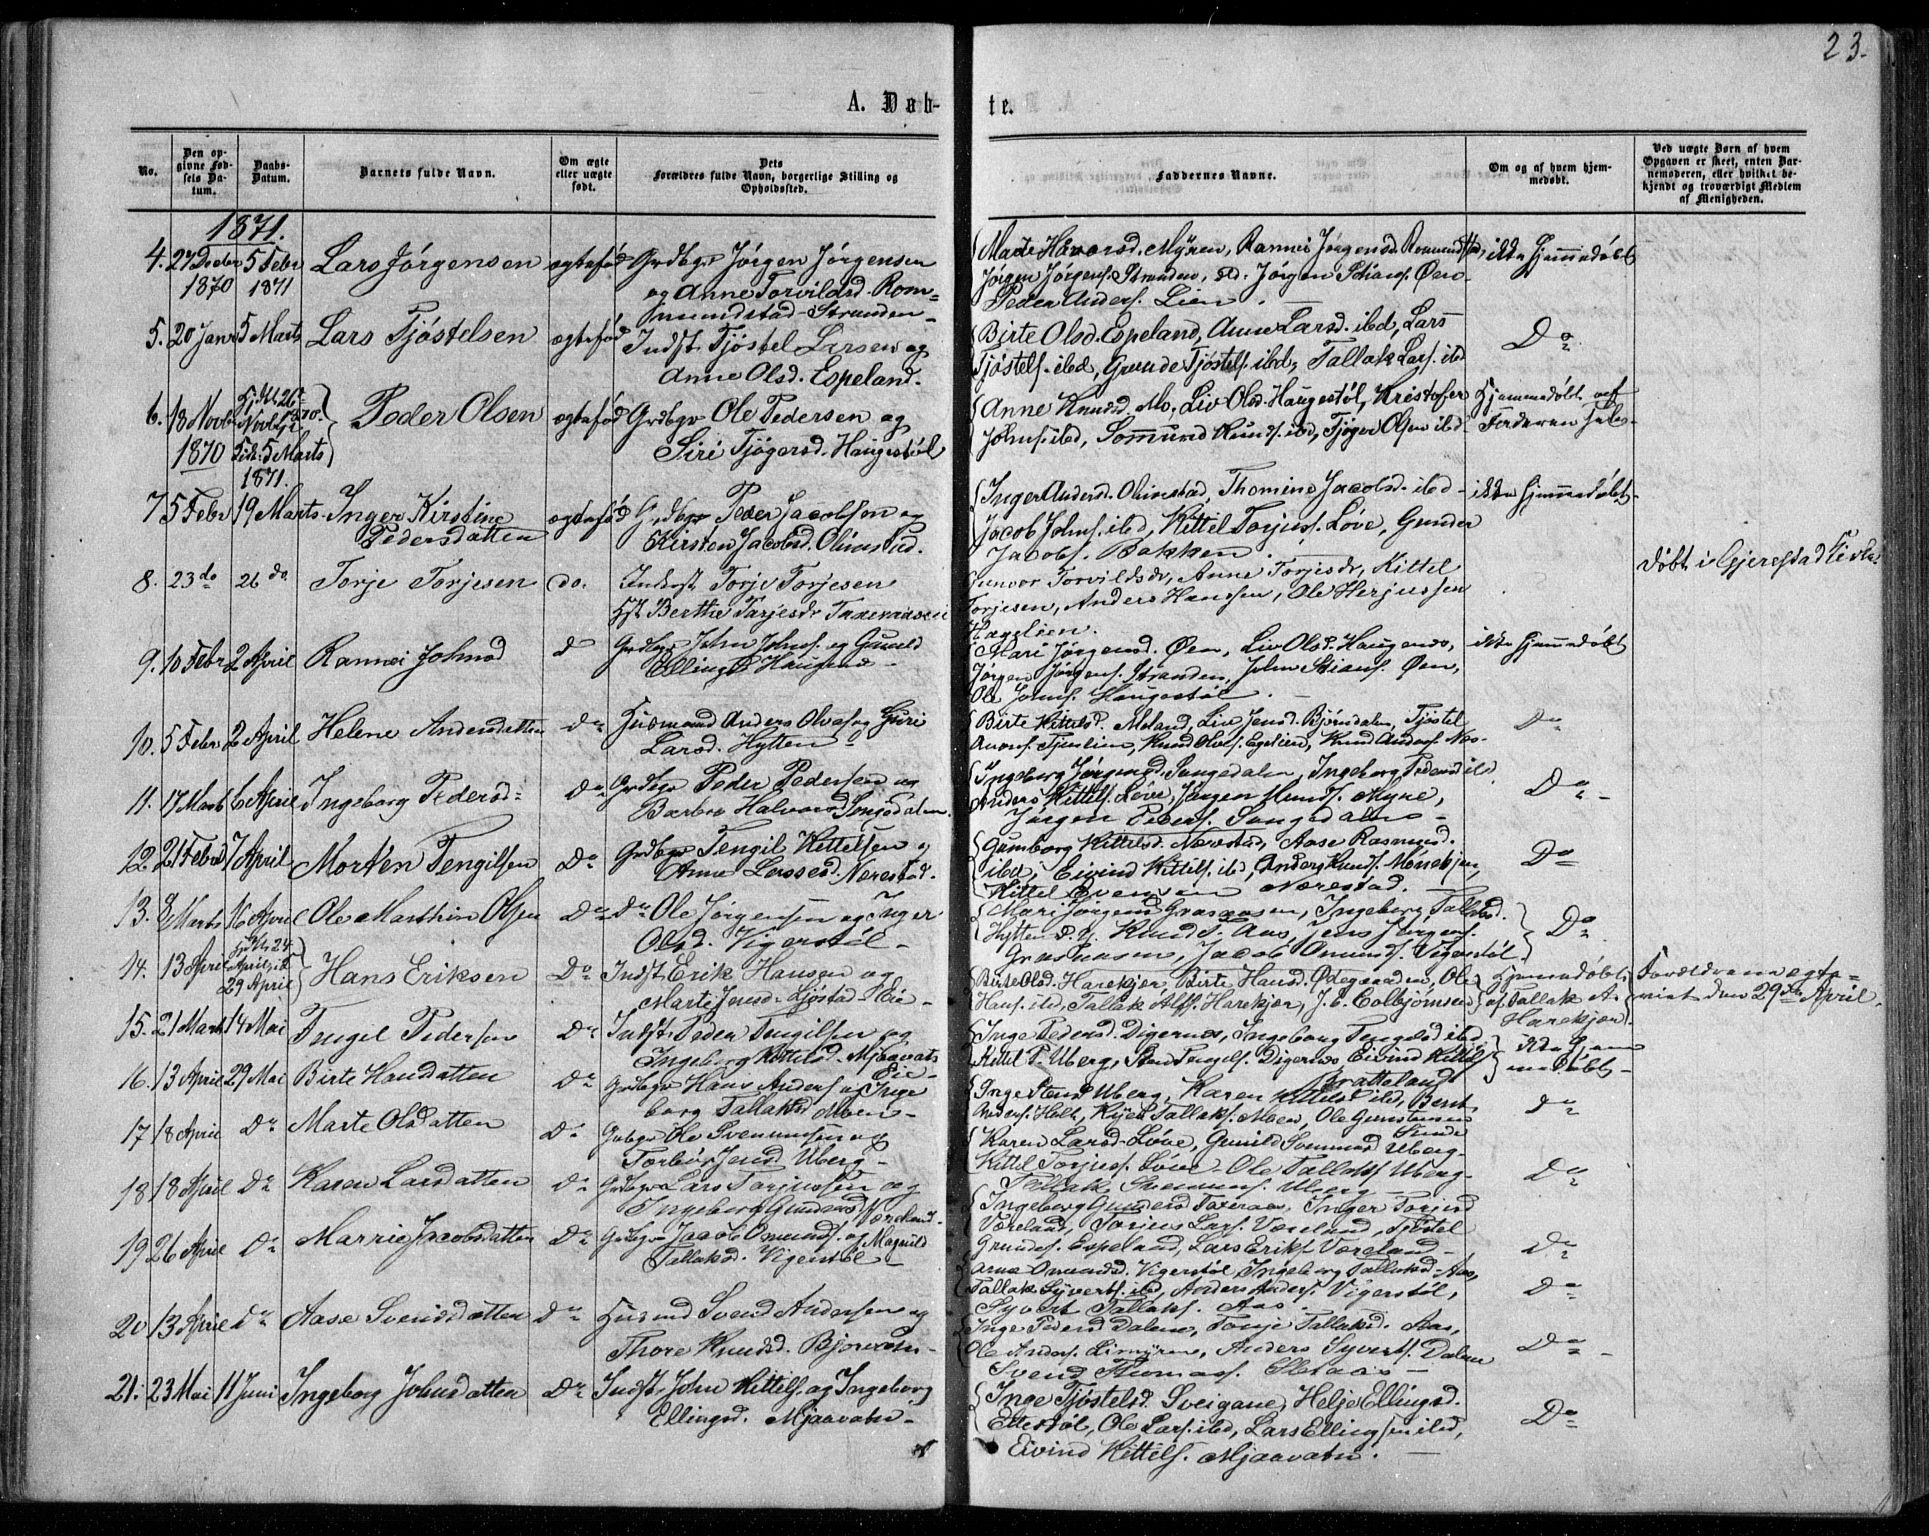 23.
A. Døb-
te.
No.
Den op-
givne Fød-
sels Da-
tum.
Daabs-
Datum.
Barnets fulde Navn.
Om ægte
eller uægte
født.
Dets
Forældres fulde Navn, borgerlige Stilling og
Opholdssted.
Faddernes Navne.
Om og af hvem hjem-
medøbt.
Ved uægte Børn af hvem
Opgaven er skeet, enten Bar-
nemoderen, eller hvilket be-
kjendt og troværdigt Medlem
af Menigheden.
1871.
4. 27 Decbr 5 Febr Lars Jørgensen ægtefød Grdbgr Jørgen Jørgensen
1870 1871 og Anne Torvildsd. Rom-
mundstad-Stranden-
Jørgen Jørgens. Stranden, Jørgen Stians. Øen-
Peder Anders. Lien. ikke hjemmedøbt
5. 20 Janr 5 Marts Lars Tjøstelsen ægtefød Indst. Tjøstel Larsen og
Anne Olsd. Espeland.
Birte Olsd. Espeland, Anne Larsd. ibd, Lars
Tjøstels. ibd, Grunde Tjøstels. ibd, Tallak Lars. ibd
Do
6. 18 Novbr Peder Olsen ægtefød Grdbgr Ole Pedersen og
1870 5 Marts Siri Tjøgersd. Haugestøl
1871.
Anne Knudsd. Mo, Liv Olsd. Haugestøl, Kristofer
Johns. ibd, Sommund Knuds. ibd, Tjøger Olsen ibd-
Hjemmedøbt af
7 5 Febr 19 Marts Inger Kirstine
Pedersdatten ægtefød Grdbgr Peder Jacobsen og
Kirsten Jacobsd. Olimstad.
Inger Andersd. Olimstad, Thomine Jacobsd. ibd-
Jacob Johns. ibd, Kittel Torjus. Løve, Gunder
Jacobs. Bakken.
ikke hjemmedøbt
8. 23 do 26 do. Torje Torjesen do. Inderst Torje Torjesen
Hst. Berthe Torjesdr
Gunvor Torvildsdr, Anne Torjesdr, Kittel
Torjesen, Anders Hanssen, Ole Herjussen
Hagelien.
Døbt i Gjerestad
9. 10 Febr 2 April Rannei Johnsd D Grdbgr John Johns. og Gunild
Ellingsd Haugene
Mari Jørgensd. Øen, Liv Olsd. Haugene,
Jørgen Jørgens. Stranden, John Stians. Øen,
Ole Johns. Haugestøl.
ikke hjemmedøbt
10. 5 Febr 2 April Helene Andersdatten Do Husmand Anders Olvss. og Guri
Larsd. Hytten
Birte Kittelsd. Meland, Liv Jensd. Bjørndalen, Tjøstel
Tjenlien, Knud Olvs. Egelien, Knud Anders. Næs-
Do
11. 17 Marts 6 April Ingeborg Pedersd Do Grdbgr Peder Pedersen og
Barbro Halvorsd Songedalen.
Ingeborg Jørgensd. Songedalen, Ingeborg Pedersd ibd
Anders Kittels. Løve, Jørgen Knuds. Myre,
Jørgen Peders. Songedalen-
Do
12. 21 Febr 7 April Morten Tengilsen Do Grdbgr Tengil Kittelsen og
Anne Larssesd. Nærestad.
Gumborg Kittelsd. Nærestad, Aase Rasmusd.
ibd, Eivind Kittels. ibd, Anders Knuds.
Kittel Evensen Nærestad.
Do
13. 8 Marts 16 April Ole Marthin Olsen Do Do Ole Jørgensen og Inger
Olsd. Vigerstøl-
Mari Jørgensd Graasaasen, Ingeborg Tallaksd.
Hytten Knud S. Aas, Jens Jørgens.
Graasaasen, Jacob Omunds. Vigerstøl.
Do
14. 13 April 29 April Hans Eriksen Do Indst Erik Hansen og
Marte Jensd. Ljøstad Eie-
Birte Olsd. Harekjær, Birte Hansd. Ødegaarden, Ole
Hans. ibd, Tallak Alfs. Harekjær, J. E. Colbjørnsen
Hjemmedøbt
af Tallak A.
Harekjær.
Forældrene ægte-
viet den 29de April.
15. 21 Marts 14 Mai Tengel Pedersen Do Indst. Peder Tengilsen og
Ingeborg Kittelsd. Mjaavats
Eie-
Inge Pedersd. Digernes, Ingeborg Tengelsd ibd
Kittel P. Uberg, Tengels. Digernes Eivind Kittels
Bratteland
ikke hjem
medøbt-
16. 13 April 29 Mai Birte Hansdatten Do Grdbgr Hans Anders. og Inge
borg Tallaksd Moen-
Inge Stensd Uberg, Karen Kittelsd ibd, Berent
Anders. Holt, Kijel Tallaks. Moen, Ole Gunstensen
Sunde
Do
17 18 April Do Marte Olsdatten Do Grdbgr Ole Svennumsen og
Torbør Jensd. Uberg-
Karen Larsd. Løve, Gunild Sommasd Uberg-
Kittel Torjuss. Løve, Ole Tallaks Uberg-
Tallak Svenums. Uberg-
Do
18 18 April Do Karen Larsdatten Do Grdbgr Lars Torjussen og
Ingeborg Gundersd Væreland.
Ingeborg Gundersd Toveraas, Inger Torjusd
Væreland, Torjus Lars. Væreland, Tjøstel
Grundes. Espeland, Lars Eriks Væreland-
Do
19 26 April Do Marrie Jacobsdatten Do Grdbgr Jacob Omunds. og Magnild
Tallaksd. Vigerstøl
Omundsd. Vigerstøl, Ingeborg Tallaksd. Aas,
Tallak Syverts. ibd, Anders Anders. Vigerstøl,
Syvert Tallaks. Aas.
Do
20 13 April Do Aase Svensdatten Do Husmd Svend Andersen og
Thore Knudsd.
Inge Pedersd Dalene, Tonje Tallaksd. Aas,
Ole Anders. Limyrene, Anders Syverts. Dalen
Svend Thomas.
Do
21. 23 Mai 11 Juni Ingeborg Johnsdatten Do Indst. John Kittels. og Ingeborg
Ellingsd. Mjaavatn-
Inge Tjøstelsd. Sveigane, Helje Ellingsd.
Ettestøl, Ole Lars. ibd, Lars Ellingsen ibd,
Eivind Kittels. Mjaavatn.
Do